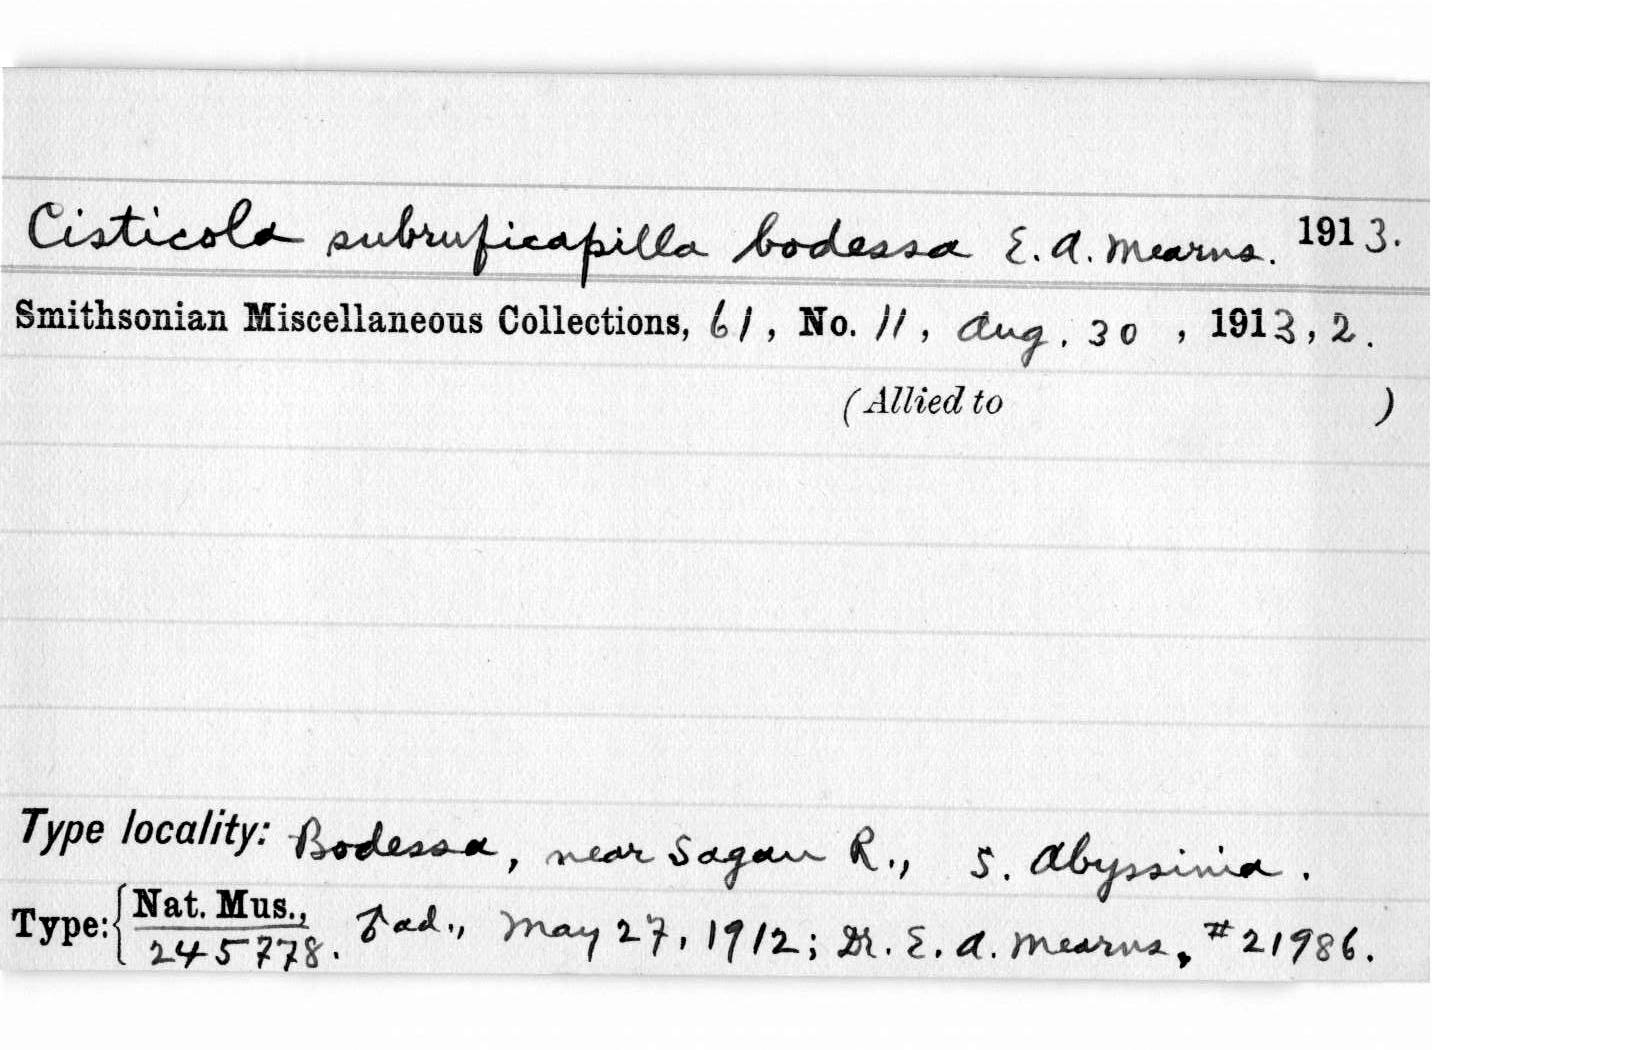 Cisticola subruficapilla bodessa E. A. Mearns. 1913.
Smithsonian Miscellaneous Collections, 61, No. 11, Aug. 30, 1913, 2.
(Allied to )
Type locality: Bodessa, near Sagan R., S. Abyssinia.
Type: { Nat. Mus., 245778. ♂ad., May 27, 1912; Dr. E. A. Mearns, #21986.